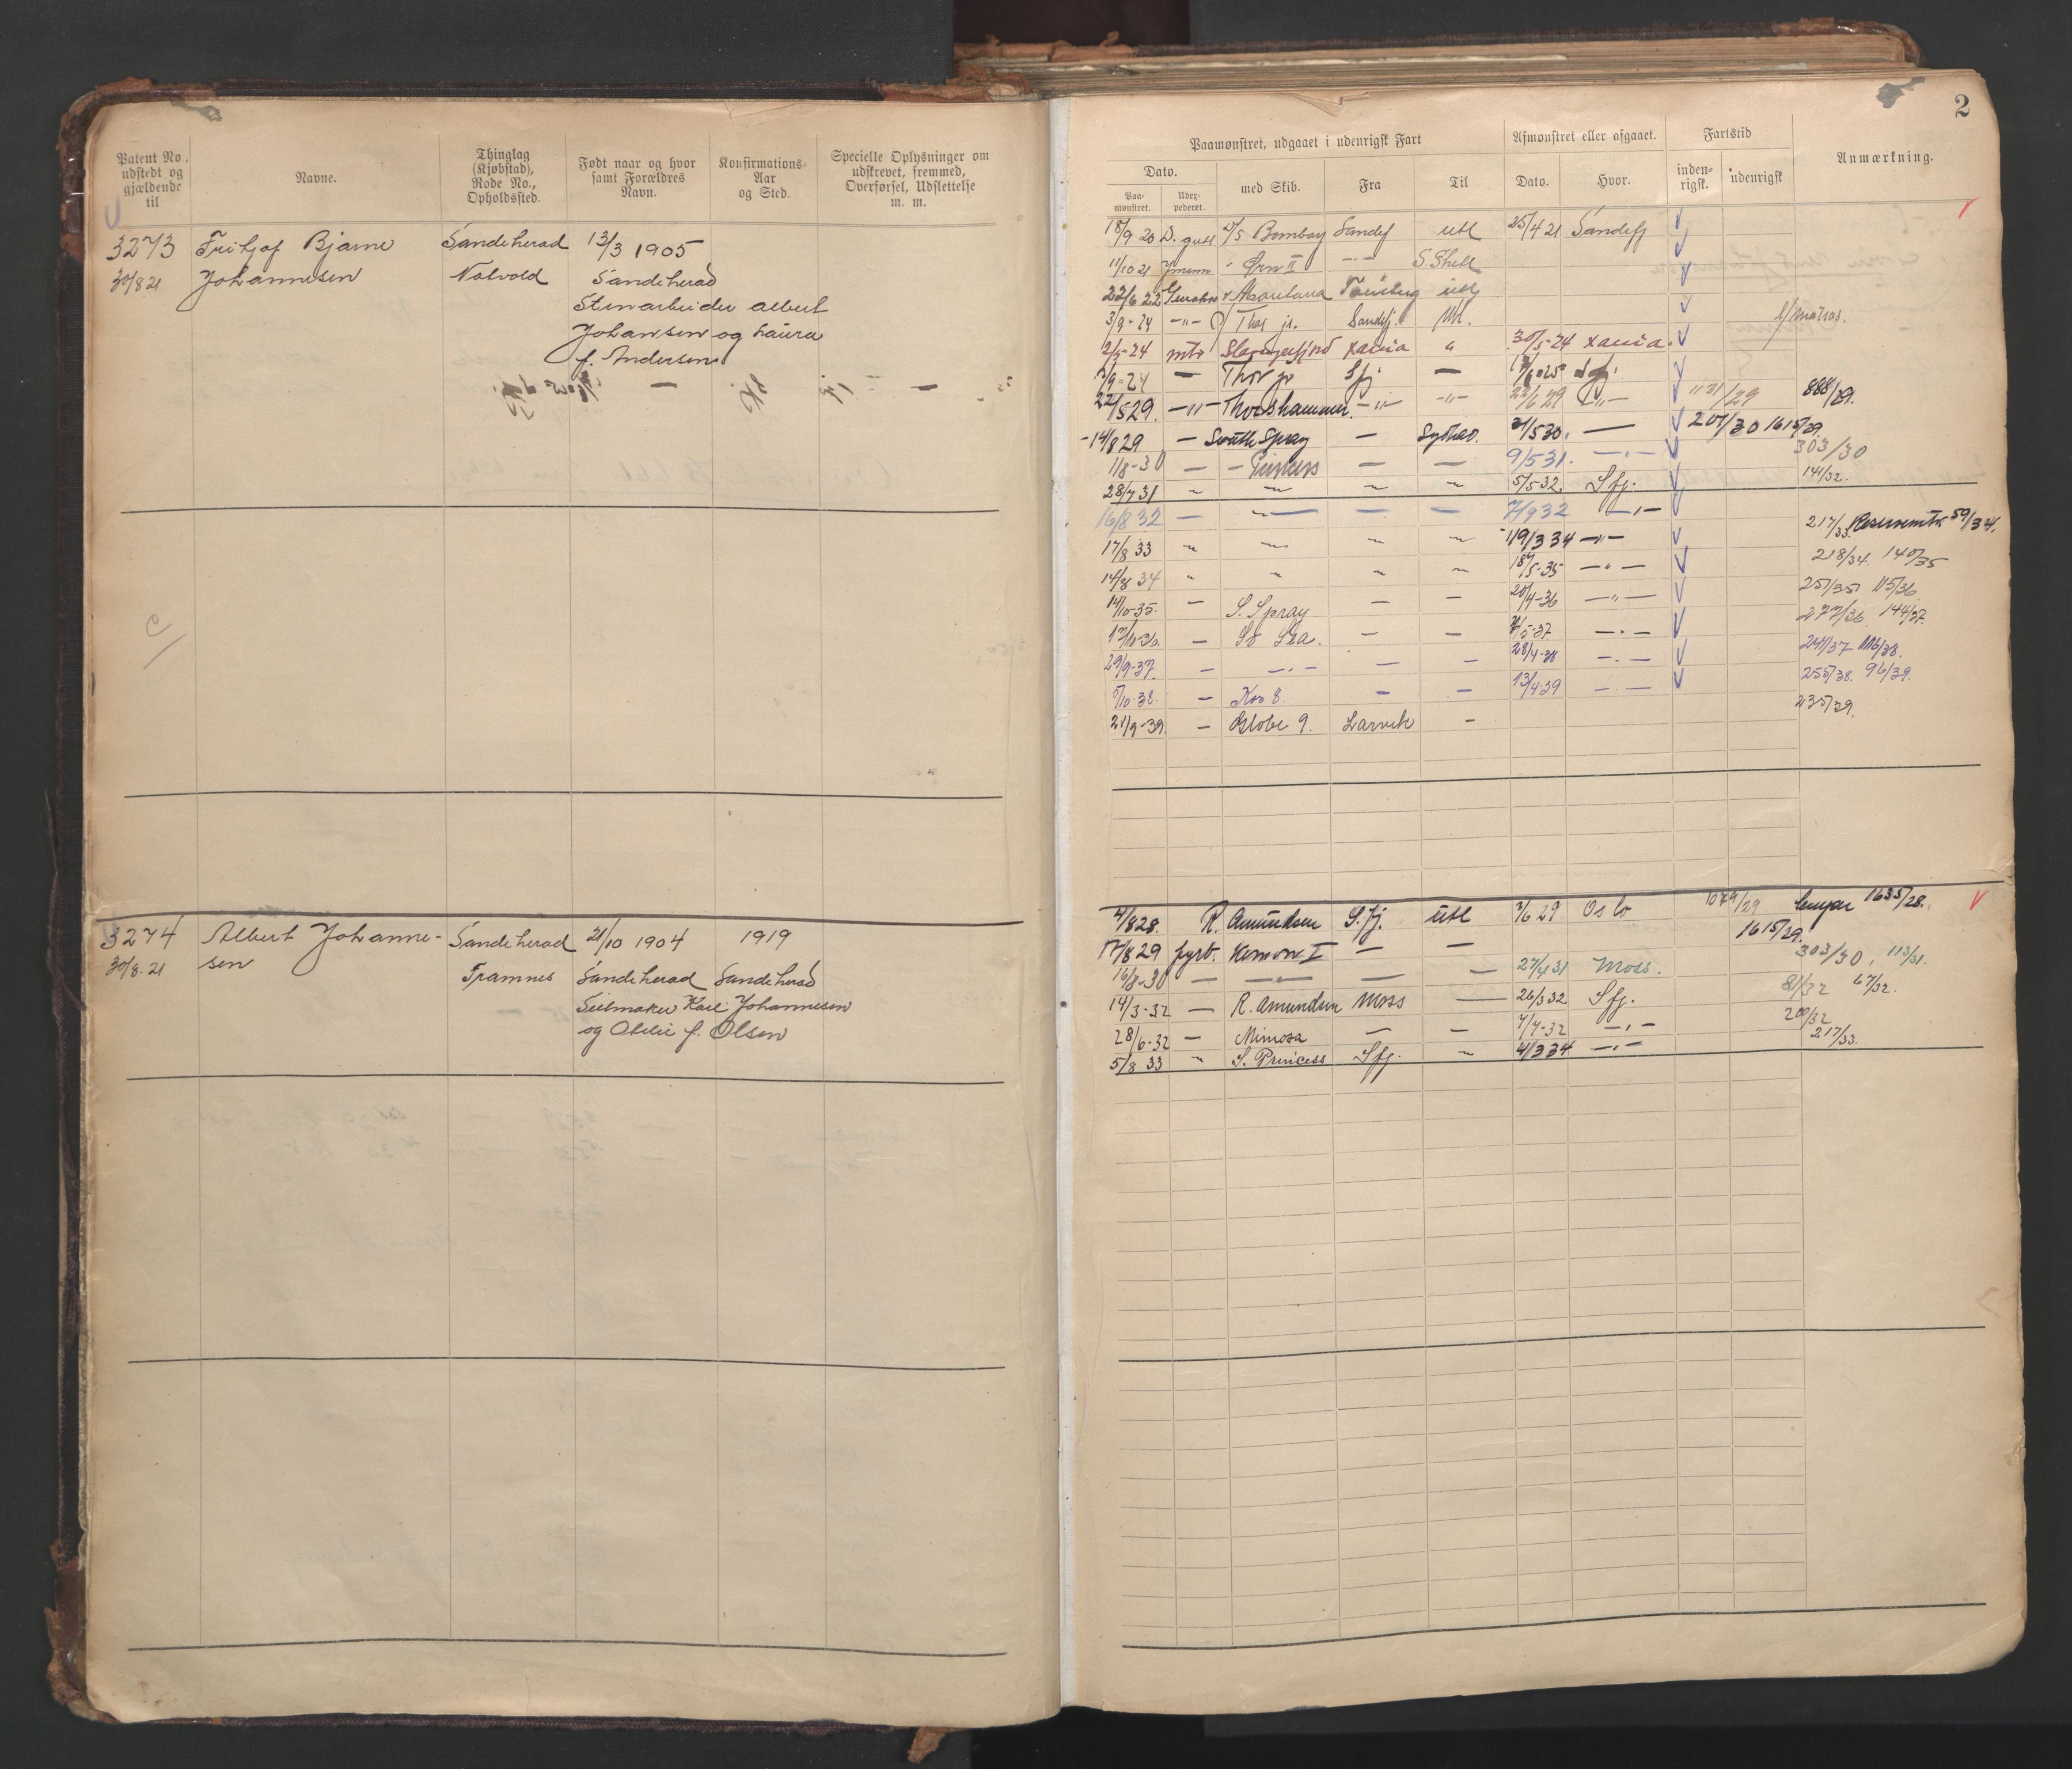 2
Patent No., udstedt og gjældende til
Navne.
Thinglag (Kjøbstad), Rode No., Opholdssted.
Født naar og hvor samt Forældres Navn.
Konfirmations-Aar og Sted.
Specielle Oplysninger om udskrevet, fremmed, Overførsel, Udslettelse m. m.
3273 Frithjof Bjarne Sandeherad 13/3 1905
30/8 21 Johannesen Nalvold Sandeherad
Stenarbeider Albert
Johansen og Laura
f. Andersen
3274 Albert Johanne- Sandeherad 21/10 1904 1919
30/8. 21 sen Framnes Sandeherad Sandeherad
Seilmaker Karl Johannesen
og Otilie f. Olsen
Paamønstret, udgaaet i udenrigsk Fart
Afmønstret eller afgaaet.
Fartstid
Anmærkning.
Dato.
med Skib.
Fra
Til
Dato.
Hvor.
inden-rigsk.
udenrigsk
Paa-mønstret.
Udex-pederet.
18/9 20 D. gutt Bombay Sandef utl 25/4 21 Sandefj
11/10 21 Ørn II -"- S. Shetl
22/6 22 Montana Tønsberg utl
3/9-24 -"- Thor jr. Sandefj. Utl. l/matros.
2/5-24 mtr Stavangerfjord Xania " 30/5-24 Xania.
/9-24 — Thor jr Sfj — /6-25 Sfj.
22/5 29. -"- Thorshammer. -"- -"- 22/6 29 -"- 1131/29 888/29.
14/8 29 — South Spray — Sydhav. 21/5 30. — 207/30 1615/29.
11/8-30 — — — — 9/5 31. -"- 303/30
28/7 31 " " " " 5/5-32. Sfj. 141/32.
16/8 32 — — — — 7/9 32 -"-
17/8 33 " " " " 19/3 34 -"- 217/33. Reservemtr 59/34.
14/8 34 " " " " 18/5-35 -"- 218/34. 140/35
14/10-35. — S. Spray — — 20/4-36 -"- 257/35 115/36.
— So Sea. — — /5-37 -"- 277/36. 144/37.
29/9-37. — -"- — — 28/4-38 -"- 241/37 116/38.
/10-38. — Kos 8. — — 13/4-39 -"- 255/38. 96/39.
21/9-39. — Globe 9. Larvik — 235/39.
4/8 28. R. Amundsen S.fj. utl /6 29 Oslo 1079/29 1635/28.
17/8 29 fyrb. — — 1615/29.
16/8-30 — — — — 27/4 31 Moss. 303/30, 113/31.
14/3-32 — R. Amundsen Moss — 26/3 32 Sfj. 81/32 67/32.
28/6-32 — Mimosa — — 7/7-32 -"- 200/32
5/8 33 " S. Princess Sfj. " 4/3 34 -"- 217/33.